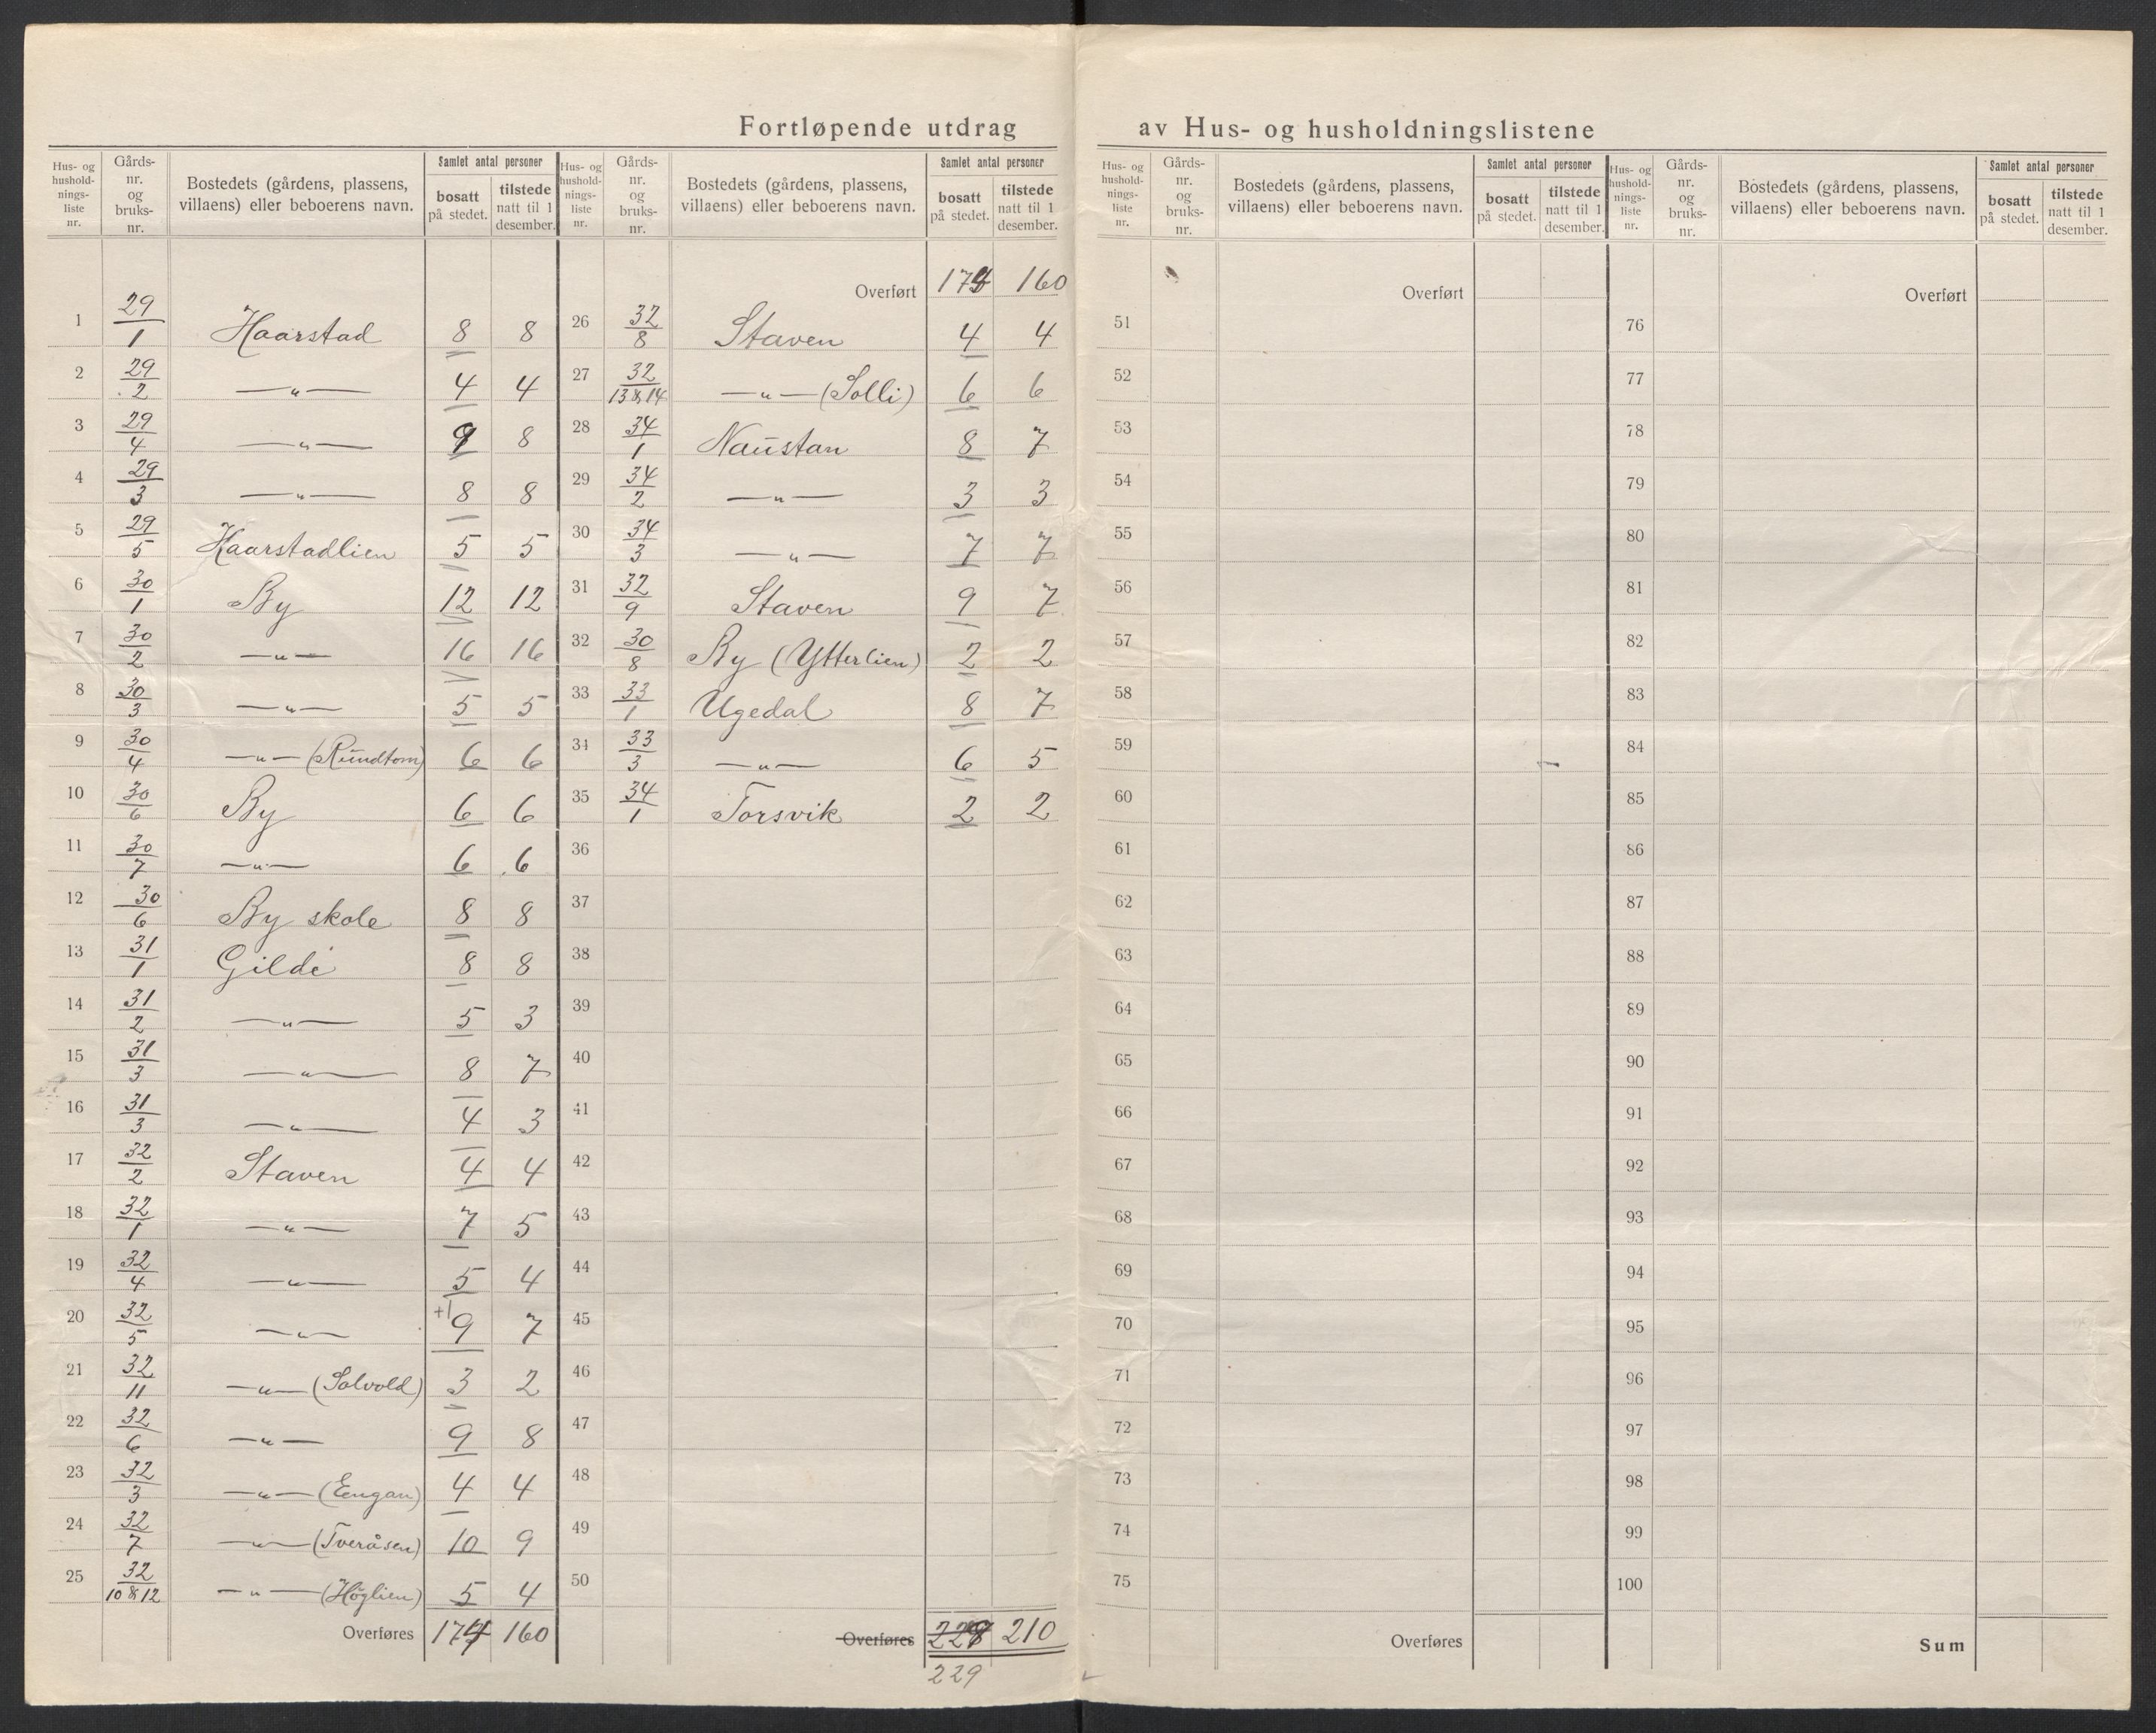 Fortløpende utdrag av Hus- og husholdningslistene
Hus- og hushold- nings- liste nr. | Gårds- nr. og bruks- nr. | Bostedets (gårdens, plassens, villaens) eller beboerens navn. | Samlet antal personer | bosatt på stedet. | tilstede natt til 1 desember.
1 29/1 Haarstad 8 8
2 29/2 —„— 4 4
3 29/4 —„— 9 8
4 29/3 —„— 8 8
5 29/5 Haarstadlien 5 5
6 30/1 By 12 12
7 30/2 —„— 16 16
8 30/3 —„— 5 5
9 30/4 —„— (Rundtom) 6 6
10 30/6 By 6 6
11 30/7 —„— 6 6
12 30/6 By skole 8 8
13 31/1 Gilde 8 8
14 31/2 —„— 5 3
15 31/3 —„— 8 7
16 31/3 —„— 4 3
17 32/2 Staven 4 4
18 32/1 —„— 7 5
19 32/4 —„— 5 4
20 32/5 —„— +1 9 7
21 32/11 —„— (Solvold) 3 2
22 32/6 —„— 9 8
23 32/3 —„— (Eengan) 4 4
24 32/7 —„— (Tveråsen) 10 9
25 32/10 & 12 —„— (Höglien) 5 4
Overføres 160
Hus- og hushold- nings- liste nr. | Gårds- nr. og bruks- nr. | Bostedets (gårdens, plassens, villaens) eller beboerens navn. | Samlet antal personer | bosatt på stedet. | tilstede natt til 1 desember.
Overført 160
26 32/8 Staven 4 4
27 32/13 & 14 —„— (Solli) 6 6
28 34/1 Naustan 8 7
29 34/2 —„— 3 3
30 34/3 —„— 7 7
31 32/9 Staven 9 7
32 30/8 By (Ytterlien) 2 2
33 33/1 Ugedal 8 7
34 33/3 —„— 6 5
35 34/1 Torsvik 2 2
36
37
38
39
40
41
42
43
44
45
46
47
48
49
50
Overføres 210
229
Hus- og hushold- nings- liste nr. | Gårds- nr. og bruks- nr. | Bostedets (gårdens, plassens, villaens) eller beboerens navn. | Samlet antal personer | bosatt på stedet. | tilstede natt til 1 desember.
Overført
51
52
53
54
55
56
57
58
59
60
61
62
63
64
65
66
67
68
69
70
71
72
73
74
75
Overføres
Hus- og hushold- nings- liste nr. | Gårds- nr. og bruks- nr. | Bostedets (gårdens, plassens, villaens) eller beboerens navn. | Samlet antal personer | bosatt på stedet. | tilstede natt til 1 desember.
Overført
76
77
78
79
80
81
82
83
84
85
86
87
88
89
90
91
92
93
94
95
96
97
98
99
100
Sum